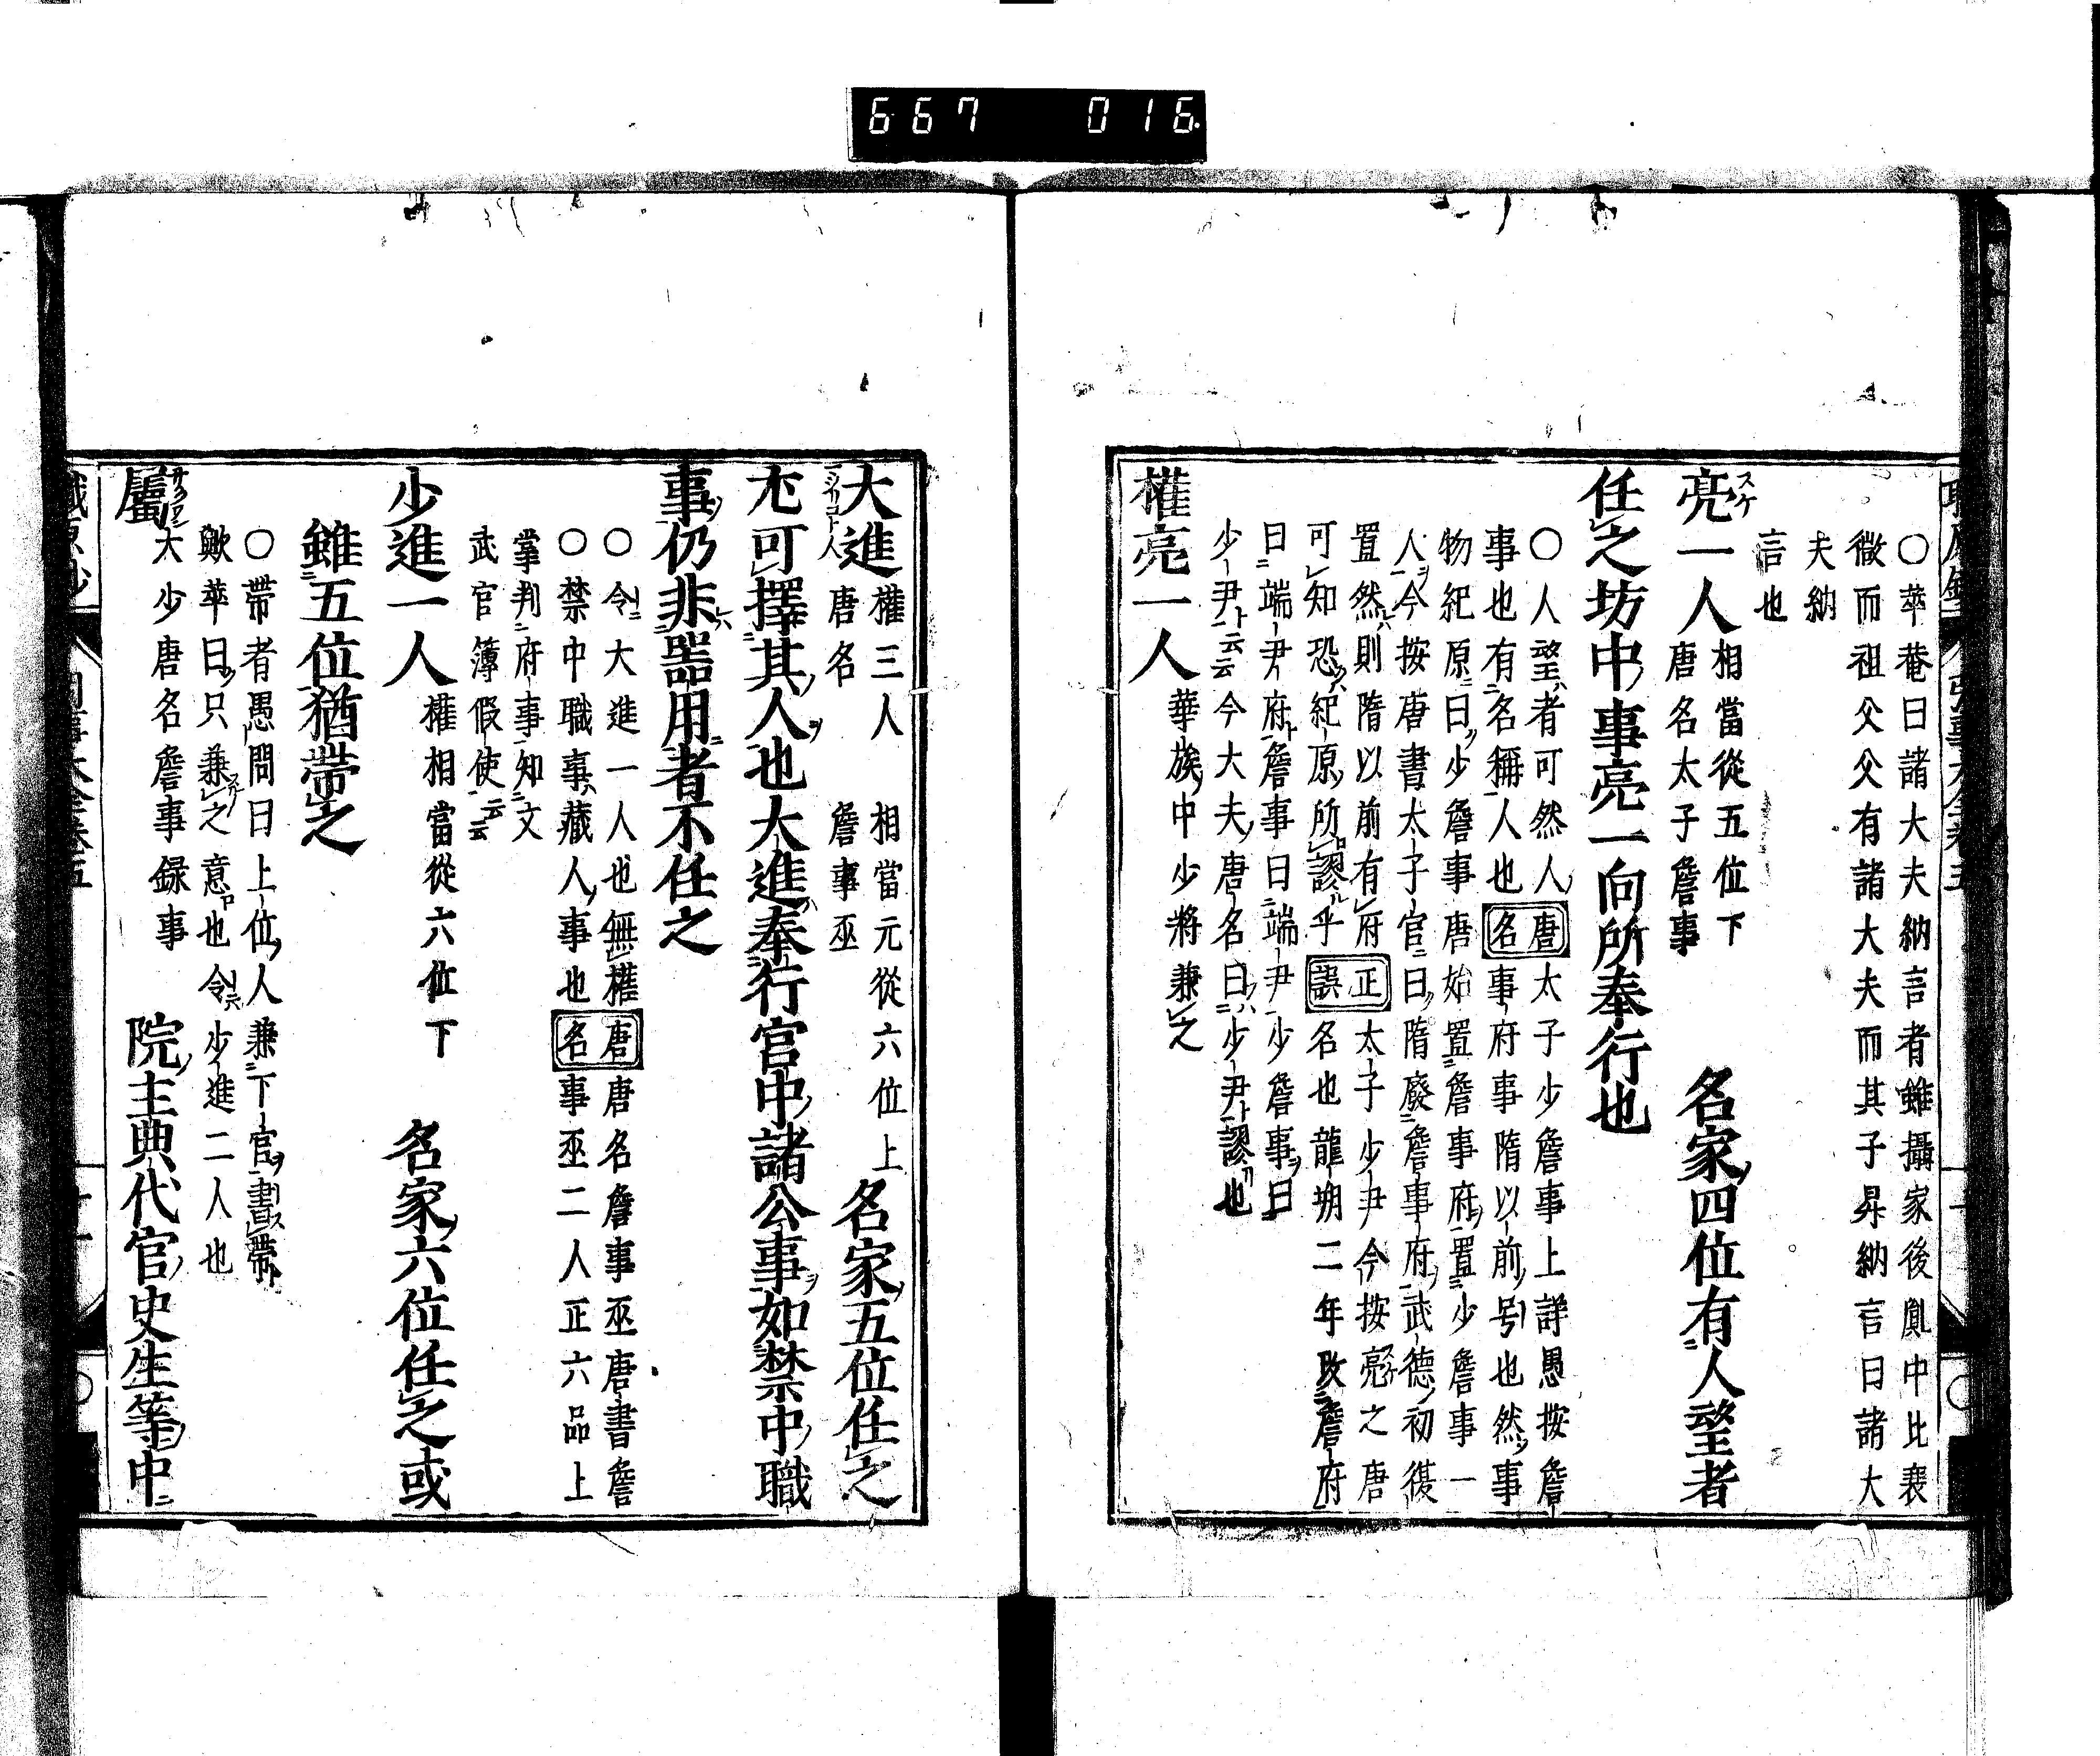 667 016
○蕐菴曰諸大夫納言者雖攝家後胤中比衰
微而祖父父有諸大夫而其子昇納言曰諸大
夫納
言也
亮一人 相當從五位下 唐名太子詹事 名家四位有人望者
任之坊中事亮一向所奉行也
○人望者可然人 唐名 太子少詹事上詳愚按詹
事也有名稱人也 事府事隋以前号也然事
物紀原曰少詹事唐始置詹事府置少詹事一
人今按唐書太子官曰隋廢詹事府武德初復
置然則隋以前有府 正誤 太子少尹今按亮之唐
可知恐紀原所謬乎 名也龍朔二年改詹府
曰端尹府詹事曰端尹少詹事曰
少尹云云今大夫唐名曰少尹謬也
權亮一人 華族中少將兼之
大進 權三人 相當元從六位上 唐名 詹事丞 名家五位任之
尤可擇其人也大進奉行官中諸公事如禁中職
事仍非器用者不任之
○令大進一人也無權 唐名 唐名詹事丞唐書詹
○禁中職事藏人事也 事丞二人正六品上
掌判府事知文
武官簿假使云云
少進一人 權相當從六位下 名家六位任之或
雖五位猶帶之
○帶者愚問曰上位人兼下官書帶
歟蕐曰只兼之意也令少進二人也
屬 大少唐名詹事録事 院主典代官史生等中